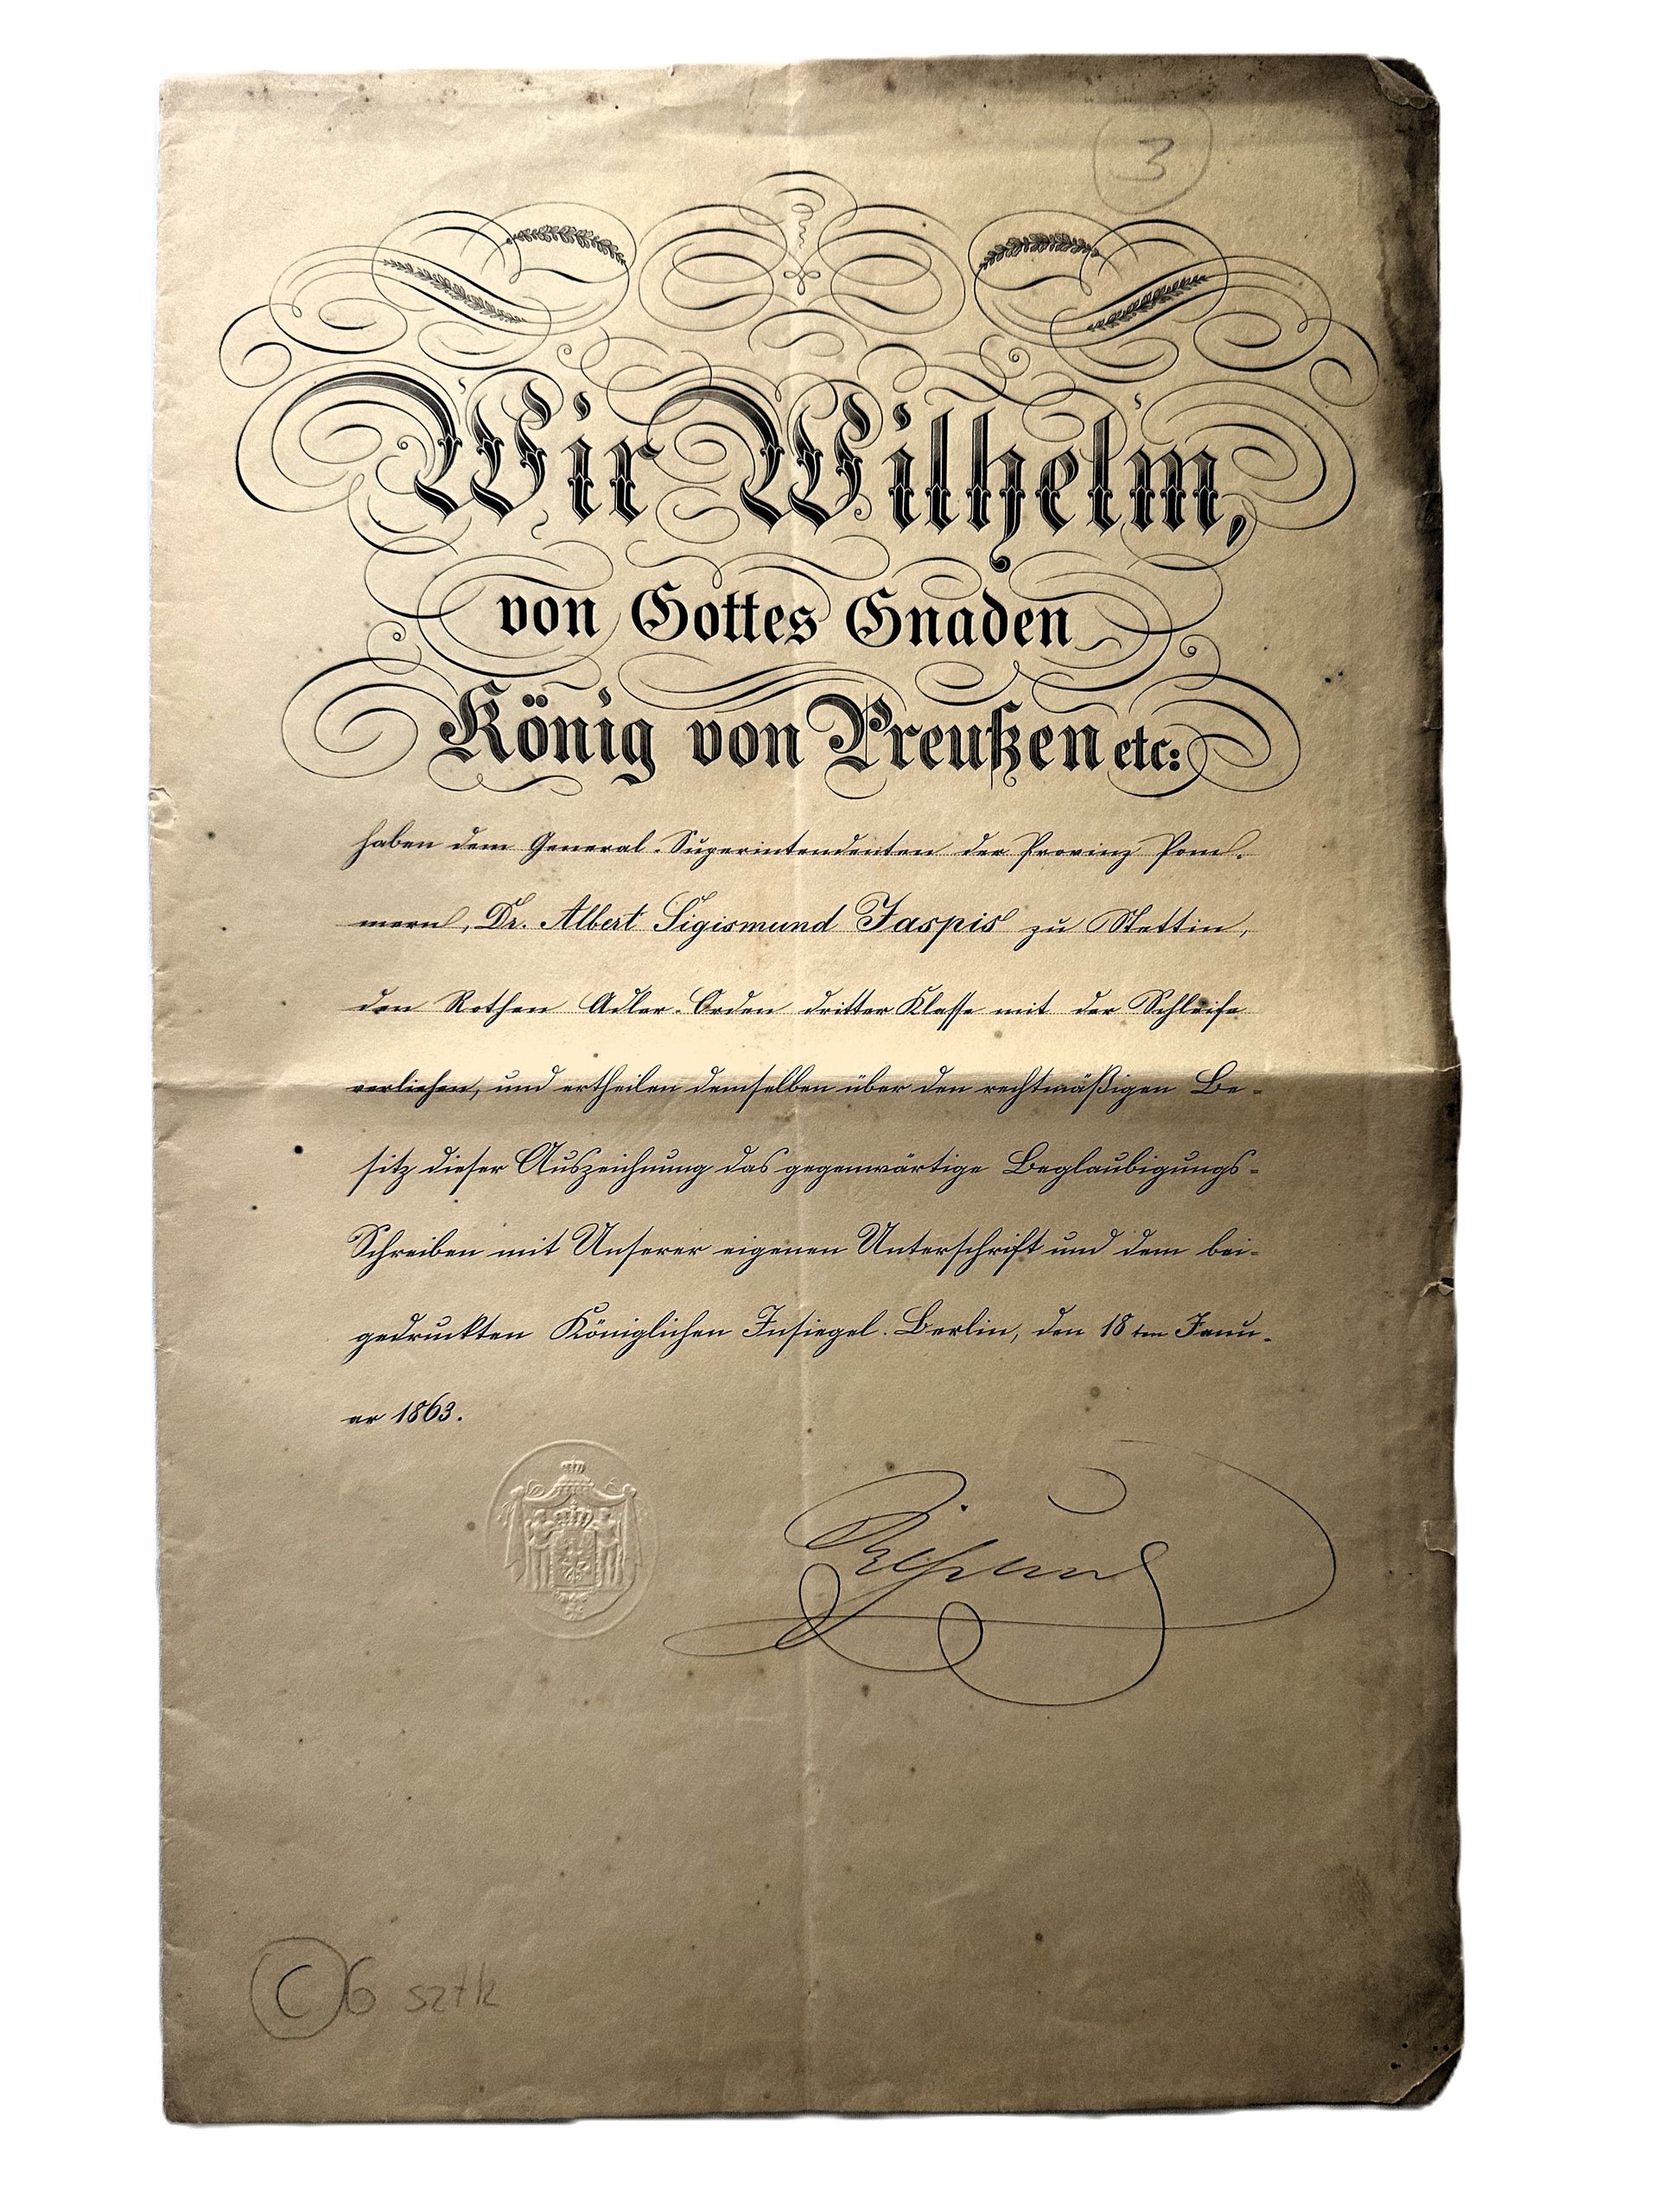 3
Wir Wilhelm,
von Gottes Gnaden
König von Preußen etc:
haben dem General-Superintendenten der Provinz Pom-
mern, Dr. Albert Sigismund Jaspis zu Stettin,
den Rothen Adler-Orden dritter Klasse mit der Schleife
verliehen, und ertheilen demselben über den rechtmäßigen Be-
sitz dieser Auszeichnung das gegenwärtige Beglaubigungs-
Schreiben mit Unserer eigenen Unterschrift und dem bei-
gedruckten Königlichen Insiegel. Berlin, den 18ten Janu-
ar 1863.
C 6 sztk